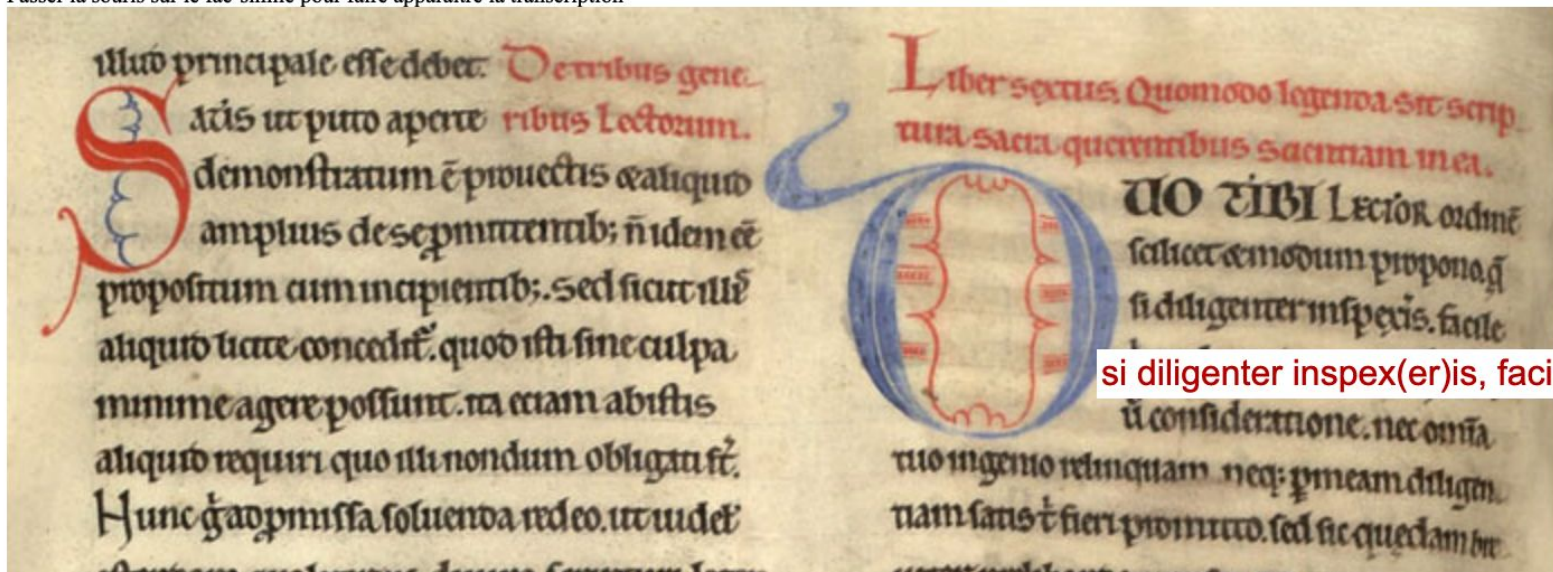 Passer la souris sur le fac-similé pour faire apparaître la transcription
illud principale esse debet. De tribus gene
Satis ut puto aperte ribus Lectorum.
demonstratum ē prouectis & aliquid
amplius de se ꝓmittentib; n̄ idem eē
propositum cum incipientib;. Sed sicut illis̄
aliquid licite conceditᷣ. quod isti sine culpa
minime agere possunt. ita etiam ab istis
aliquid requiri quo illi nondum obligati st̄.
Hunc g̊ ad ꝓmissa soluenda redeo. ut uidel&
Liber sextus. Quomodo legenda sit scrip
tura sacra querentibus scientiam in ea.
DUO TIBI LECTOR ordinē
scilicet & modum propono. q̄
si diligenter inspexis. facile
si diligenter inspex(er)is, faci
ū consideratione. nec omīa
tuo ingenio relinquam neq; ꝑ meam diligen
tiam satis t̄ fieri promitto. sed sic quedam bre